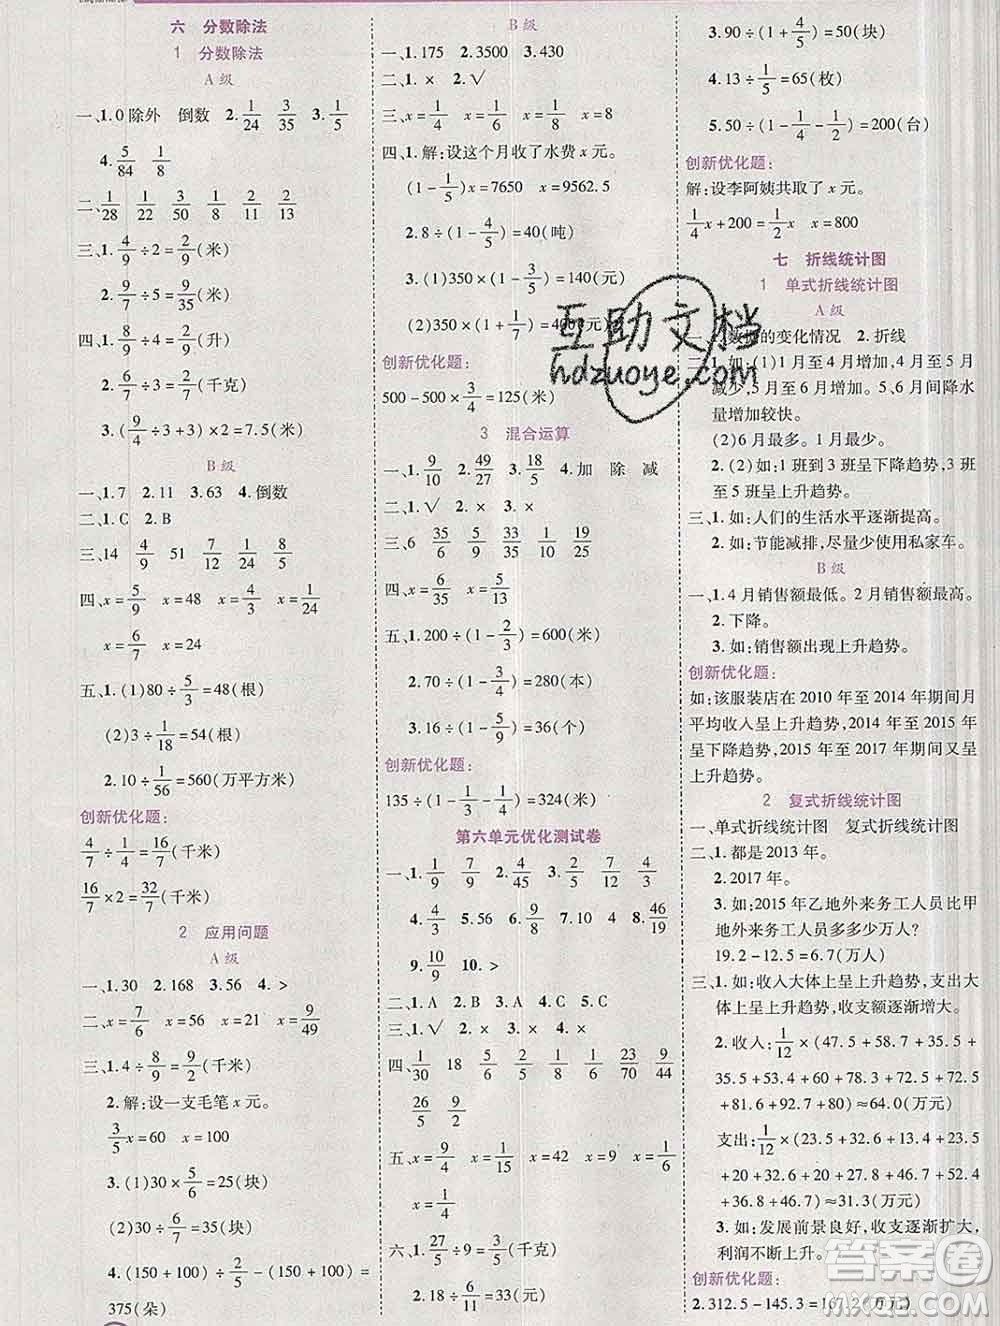 六 分数除法
1 分数除法
A 级
一、1.0 除外 倒数 2. 1/24 3/35 3. 1/5
4. 5/84 1/14
二、1/28 1/22 3/50 1/8 2/11 2/13
三、1. 4/9 ÷2= 2/9 (米)
2. 9/7 ÷5= 9/35 (米)
四、1. 8/9 ÷4= 2/9 (升)
2. 6/7 ÷3= 2/7 (千克)
3.( 9/4 ÷3+3)×2=7.5(米)
B 级
一、1.7 2.11 3.63 4.倒数
二、1.C 2.B
三、14 4/9 51 7/12 1/24 8/5
四、x= 5/9 x=48 x= 9/8 x= 1/24
x= 6/7 x=24
五、1.(1)80÷ 5/3 =48(根)
(2)3÷ 1/18 =54(根)
2.10÷ 1/56 =560(万平方米)
创新优化题:
4/7 ÷ 1/4 = 16/7 (千米)
16/7 ×2= 32/7 (千米)
2 应用问题
A 级
一、1.30 2.168 3.56 4.>
二、x= 7/6 x=16 x=21 x= 9/49
三、1.4÷ 8/9 = 9/2 (千米)
2.解:设一支毛笔 x 元。
3/5 x=60 x=100
3.(1)30× 5/6 =25(块)
(2)30÷ 6/7 =35(块)
4.(150+100)÷ 2/5 -(150+100)=
375(朵)
B 级
一、1.175 2.3500 3.430
二、1.× 2.√
三、x= 1/4 x= 1/6 x= 1/8 x=8
四、1.解:设这个月收了水费 x 元。
(1- 1/5 )x=7650 x=9562.5
2.8÷(1- 4/5 )=40(吨)
3.(1)350×(1- 3/5 )=140(元)
(2)350×(1+ 1/7 )=400(元)
创新优化题:
500-500× 3/4 =125(米)
3 混合运算
一、1. 9/10 2. 49/27 3. 18/5 4.加 除 减
二、1.√ 2.×
三、6 35/6 5/9 1/12 6/5 7/9
四、x= 6/35 x= 5/16
五、1.200÷(1- 2/3 )=600(米)
2.70÷(1- 3/4 )=280(本)
3.16÷(1- 5/9 )=36(个)
创新优化题:
135÷(1- 1/3 - 1/4 )=324(米)
第六单元优化测试卷
一、1. 1/9 7/9 2. 4/45 3. 5/9 7/5
4. 4/3 5.56 6. 9/8 7.64 8. 46/19
9. 2/10 10.>
二、1.A 2.B 3.A
三、1.√ 2.× 3.× 4.×
四、1/30 18 5/6 2/6 1/2 23/70 9/56
26/5 9/2
五、x= 9/4 x= 1/15 x=42 x=9 x= 1/6
x= 1/4
六、1. 27/5 ÷9= 3/5 (千克)
2.18÷ 6/11 =33(米)
3.90÷(1+ 4/5 )=50(块)
4.13÷ 1/5 =65(枚)
5.50÷(1- 1/4 - 1/2 )=200(台)
创新优化题:
解:设李阿姨共取了 x 元。
1/4 x+200= 1/2 x x=800
七 折线统计图
1 单式折线统计图
A 级
数据的变化情况 2.折线
二、1.如:(1)1 月至 4 月增加,4 月至 5 月
减少,5 月至 6 月增加。5、6 月间降水
量增加较快。
(2)6 月最多。1 月最少。
2.(2)如:1 班到 3 班呈下降趋势,3 班
至 5 班呈上升趋势。
三、1.如:人们的生活水平逐渐提高。
2.如:节能减排,尽量少使用私家车。
B 级
一、1.4 月销售额最低。2 月销售额最高。
2.下降。
3.如:销售额出现上升趋势。
创新优化题:
如:该服装店在 2010 年至 2014 年期间月
平均收入呈上升趋势,2014 年至 2015 年
呈下降趋势,2015 年至 2017 年期间又呈
上升趋势。
2 复式折线统计图
一、单式折线统计图 复式折线统计图
二、1.都是 2013 年。
2.2017 年。
3.如:2015 年乙地外来务工人员比甲
地外来务工人员多多少万人?
19.2-12.5=6.7(万人)
三、1.如:收入大体上呈上升趋势,支出大
体上呈上升趋势,收支额逐渐增大。
2.收入: 1/12 ×(47.5+35.5+
35.5+53.5+72.8+81.6+72.8
+81.6+92.7+84)≈64.0(万元)
支出: 1/12 ×(23.6+23.5+
+20+32+22.5+23.5+32.5+
36.8+46.7)≈31.3(万元)
3.如:发展前景良好,收支逐渐扩大,
利润不断上升。
创新优化题:
2.312.5-145.3=167.2(万元)
互助文档
hdzuoye.com
答案圈
MXQE.COM